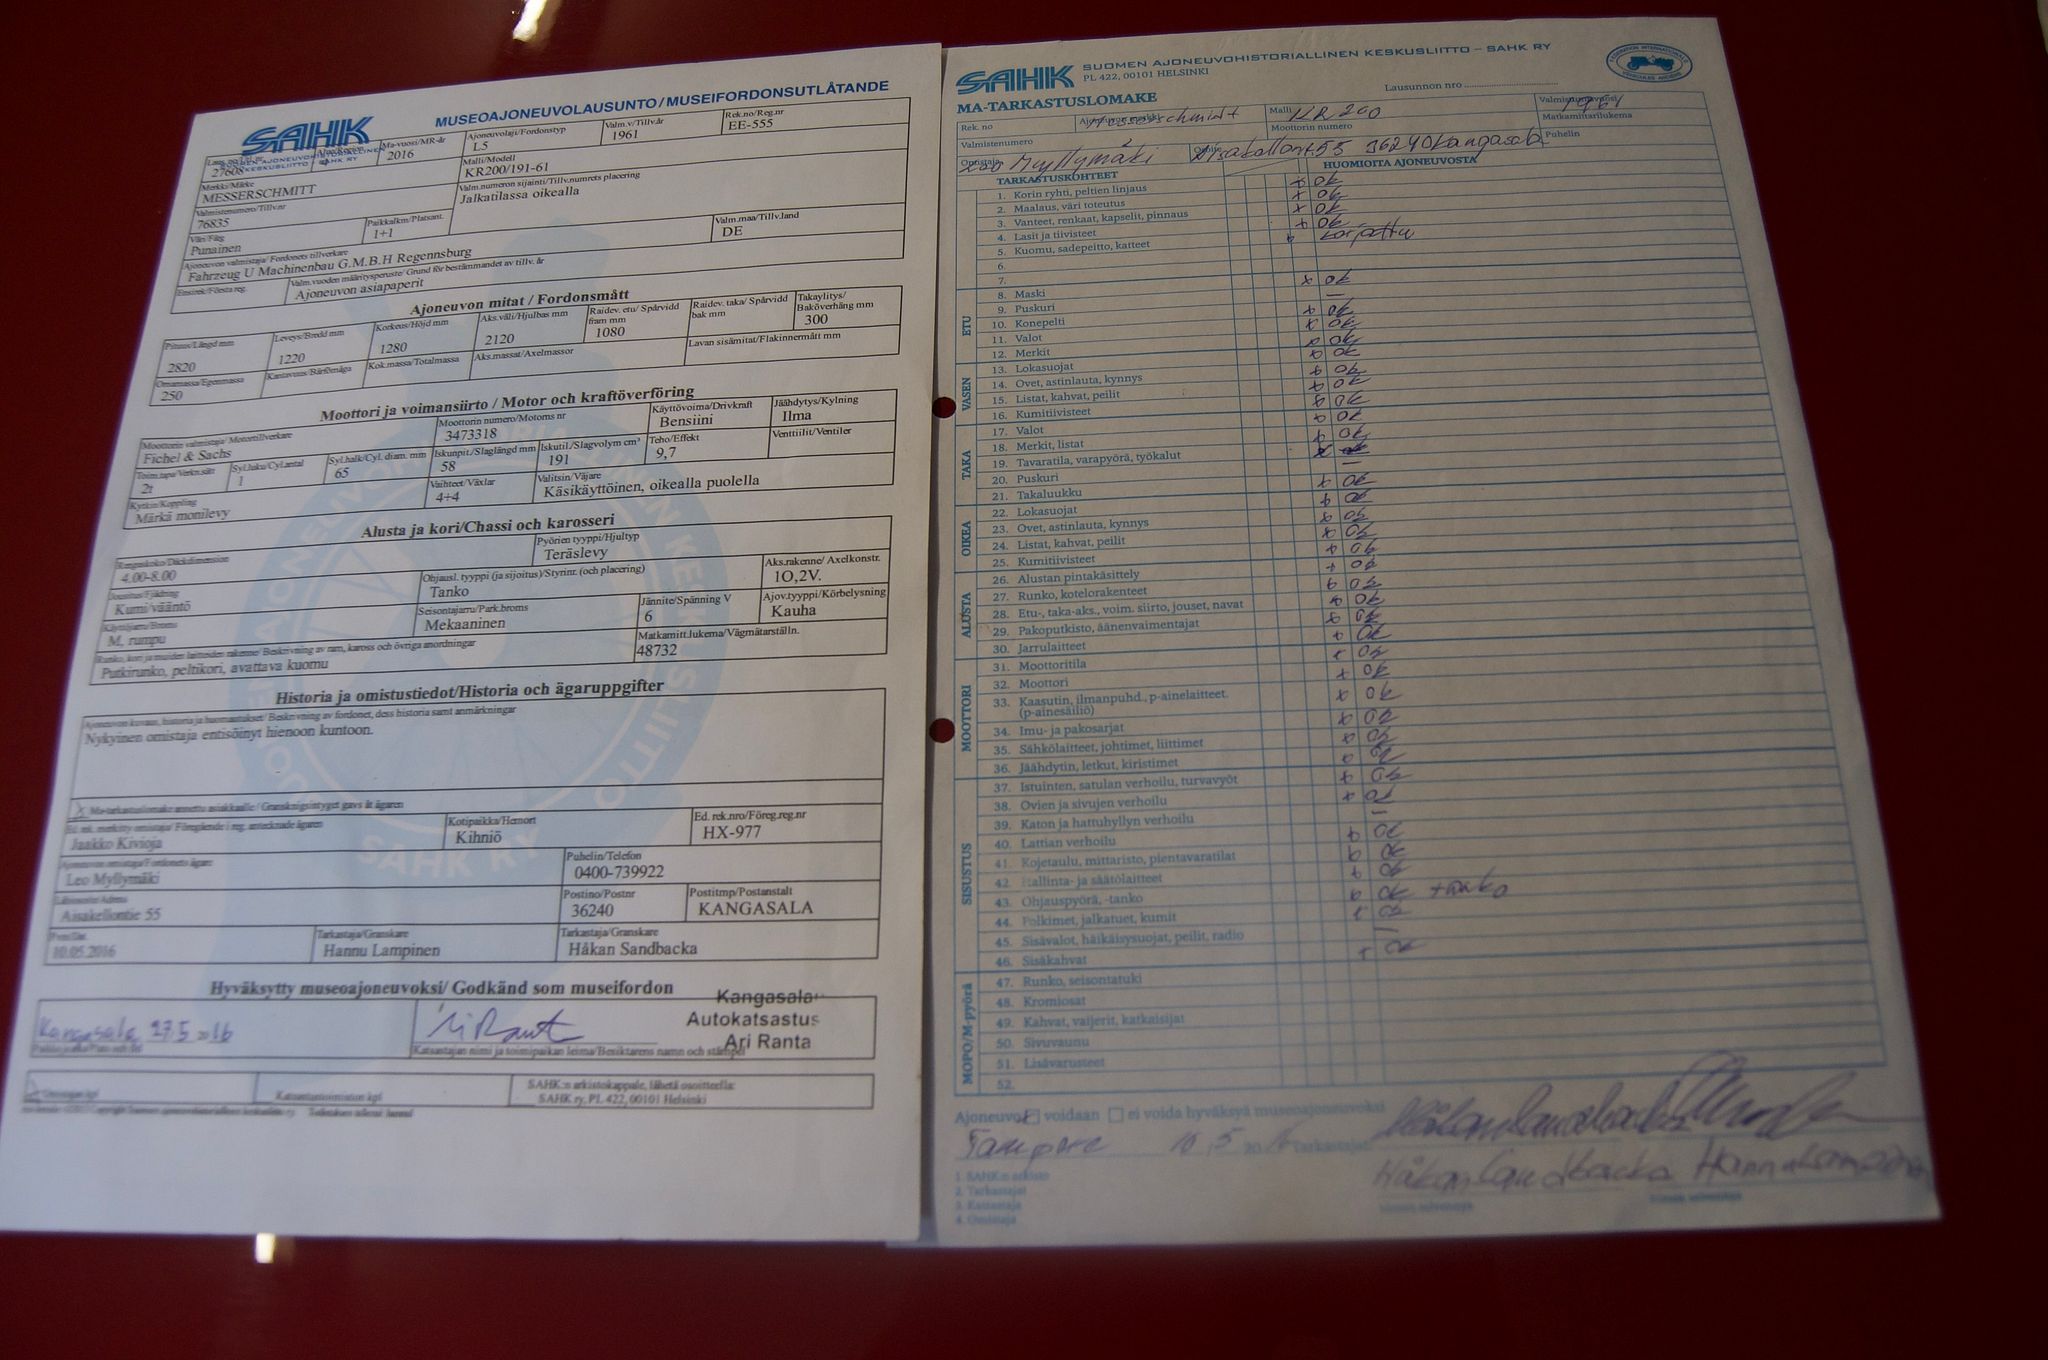 SAHK
SUOMEN AJONEUVOHISTORIALLINEN KESKUSLIITTO - SAHK RY
MUSEOAJONEUVOLAUSUNTO/MUSEIFORDONSUTLÅTANDE
27608
Ma-vuosi/MR-år
2016
Ajoneuvolaji/Fordonstyp
L5
Valm.v/Tillv.år
1961
Rek.no/Reg.nr
EE-555
Merkki/Märke
MESSERSCHMITT
Malli/Modell
KR200/191-61
Valmistenumero/Tillv.nr
76835
Paikkalkm/Platsant.
1+1
Valm.numeron sijainti/Tillv.numrets placering
Jalkatilassa oikealla
Väri/Färg
Punainen
Valm.maa/Tillv.land
DE
Ajoneuvon valmistaja/ Fordonets tillverkare
Fahrzeug U Machinenbau G.M.B.H Regennsburg
Ensirek/Första reg.
Valm.vuoden määritysperuste/ Grund för bestämmandet av tillv. år
Ajoneuvon asiapaperit
Ajoneuvon mitat / Fordonsmått
Pituus/Längd mm
2820
Leveys/Bredd mm
1220
Korkeus/Höjd mm
1280
Aks.väli/Hjulbas mm
2120
Raidev. etu/ Spårvidd fram mm
1080
Raidev. taka/ Spårvidd bak mm
Takaylitys/ Baköverhäng mm
300
Omamassa/Egenmassa
250
Kantavuus/Bärförmåga
Kok.massa/Totalmassa
Aks.massat/Axelmassor
Lavan sisämitat/Flakinnermått mm
Moottori ja voimansiirto / Motor och kraftöverföring
Moottorin valmistaja/ Motortillverkare
Fichel & Sachs
Moottorin numero/Motorns nr
3473318
Käyttövoima/Drivkraft
Bensiini
Jäähdytys/Kylning
Ilma
Toim.tapa/Verkn.sätt
2t
Syl.luku/Cyl.antal
1
Syl.halk/Cyl. diam. mm
65
Iskunpit./Slaglängd mm
58
Iskutil./Slagvolym cm³
191
Teho/Effekt
9,7
Venttiilit/Ventiler
Kytkin/Koppling
Märkä monilevy
Vaihteet/Växlar
4+4
Valitsin/Väljare
Käsikäyttöinen, oikealla puolella
Alusta ja kori/Chassi och karosseri
Rengaskoko/Däckdimension
4.00-8.00
Pyörien tyyppi/Hjultyp
Teräslevy
Jousitus/Fjädring
Kumi/vääntö
Ohjausl. tyyppi (ja sijoitus)/Styrinr. (och placering)
Tanko
Aks.rakenne/ Axelkonstr.
1O,2V.
Käyttöjarru/Broms
M, rumpu
Seisontajarru/Park.broms
Mekaaninen
Jännite/Spänning V
6
Ajov.tyyppi/Körbelysning
Kauha
Runko, kori ja muiden laitteiden rakenne/ Beskrivning av ram, kaross och övriga anordningar
Putkirunko, peltikori, avattava kuomu
Matkamitt.lukema/Vägmätarställn.
48732
Historia ja omistustiedot/Historia och ägaruppgifter
Ajoneuvon kuvaus, historia ja huomautukset/ Beskrivning av fordonet, dess historia samt anmärkningar
Nykyinen omistaja entisöinyt hienoon kuntoon.
Ma-tarkastuslomake annettu asiakkaalle/ Granskningsintyget gavs åt ägaren
Ed. rek. merkitty omistaja/ Föregående i reg. antecknade ägaren
Jaakko Kivioja
Kotipaikka/Hemort
Kihniö
Ed. rek.nro/Föreg.reg.nr
HX-977
Ajoneuvon omistaja/Fordonets ägare
Leo Myllymäki
Puhelin/Telefon
0400-739922
Lähiosoite/Adress
Aisakellontie 55
Postino/Postnr
36240
Postitmp/Postanstalt
KANGASALA
10.05.2016
Tarkastaja/Granskare
Hannu Lampinen
Tarkastaja/Granskare
Håkan Sandbacka
Hyväksytty museoajoneuvoksi/ Godkänd som museifordon
Kangasala 27.5 2016
Katsastajan nimi ja toimipaikan leima/Besiktarens namn och stämpel
Kangasalan
Autokatsastus
Ari Ranta
Omistajan kpl
Katsastustoimiston kpl
SAHK:n arkistokappale, lähetä osoitteella:
SAHK ry, PL 422, 00101 Helsinki
SAHK
SUOMEN AJONEUVOHISTORIALLINEN KESKUSLIITTO – SAHK RY
PL 422, 00101 HELSINKI
MA-TARKASTUSLOMAKE
Lausunnon nro
Rek. no
Ajoneuvon merkki
Messerschmidt
Malli
KR 200
Valmistusvuosi
1961
Valmistenumero
Moottorin numero
Matkamittarilukema
Omistaja
Leo Myllymäki
Osoite
Aisakellont. 55 36240 Kangasala
Puhelin
TARKASTUSKOHTEET
HUOMIOITA AJONEUVOSTA
1. Korin ryhti, peltien linjaus x ok
2. Maalaus, väri toteutus x ok
3. Vanteet, renkaat, kapselit, pinnaus x ok
4. Lasit ja tiivisteet x ok
5. Kuomu, sadepeitto, katteet x korjattu
6.
7.
ETU
8. Maski x ok
9. Puskuri —
10. Konepelti x ok
11. Valot x ok
12. Merkit x ok
VASEN
13. Lokasuojat x ok
14. Ovet, astinlauta, kynnys x ok
15. Listat, kahvat, peilit x ok
16. Kumitiivisteet x ok
TAKA
17. Valot x ok
18. Merkit, listat x ok
19. Tavaratila, varapyörä, työkalut x
20. Puskuri —
21. Takaluukku x ok
OIKEA
22. Lokasuojat x ok
23. Ovet, astinlauta, kynnys x ok
24. Listat, kahvat, peilit x ok
25. Kumitiivisteet x ok
ALUSTA
26. Alustan pintakäsittely x ok
27. Runko, kotelorakenteet x ok
28. Etu-, taka-aks., voim. siirto, jouset, navat x ok
29. Pakoputkisto, äänenvaimentajat x ok
30. Jarrulaitteet x ok
MOOTTORI
31. Moottoritila x ok
32. Moottori x ok
33. Kaasutin, ilmanpuhd., p-ainelaitteet. (p-ainesäiliö) x ok
34. Imu- ja pakosarjat x ok
35. Sähkölaitteet, johtimet, liittimet x ok
36. Jäähdytin, letkut, kiristimet x ok
SISUSTUS
37. Istuinten, satulan verhoilu, turvavyöt x ok
38. Ovien ja sivujen verhoilu x ok
39. Katon ja hattuhyllyn verhoilu —
40. Lattian verhoilu x ok
41. Kojetaulu, mittaristo, pientavaratilat x ok
42. Hallinta- ja säätölaitteet x ok
43. Ohjauspyörä, -tanko x ok tanko
44. Polkimet, jalkatuet, kumit x ok
45. Sisävalot, häikäisysuojat, peilit, radio —
46. Sisäkahvat x ok
MOPO/M-pyörä
47. Runko, seisontatuki
48. Kromiosat
49. Kahvat, vaijerit, katkaisijat
50. Sivuvaunu
51. Lisävarusteet
52.
Ajoneuvo voidaan ei voida hyväksyä museoajoneuvoksi
Tampere 10.5 2016 Tarkastajat
Håkan Sandbacka Hannu Lampinen
1. SAHK:n arkisto
2. Tarkastajat
3. Katsastaja
4. Omistaja